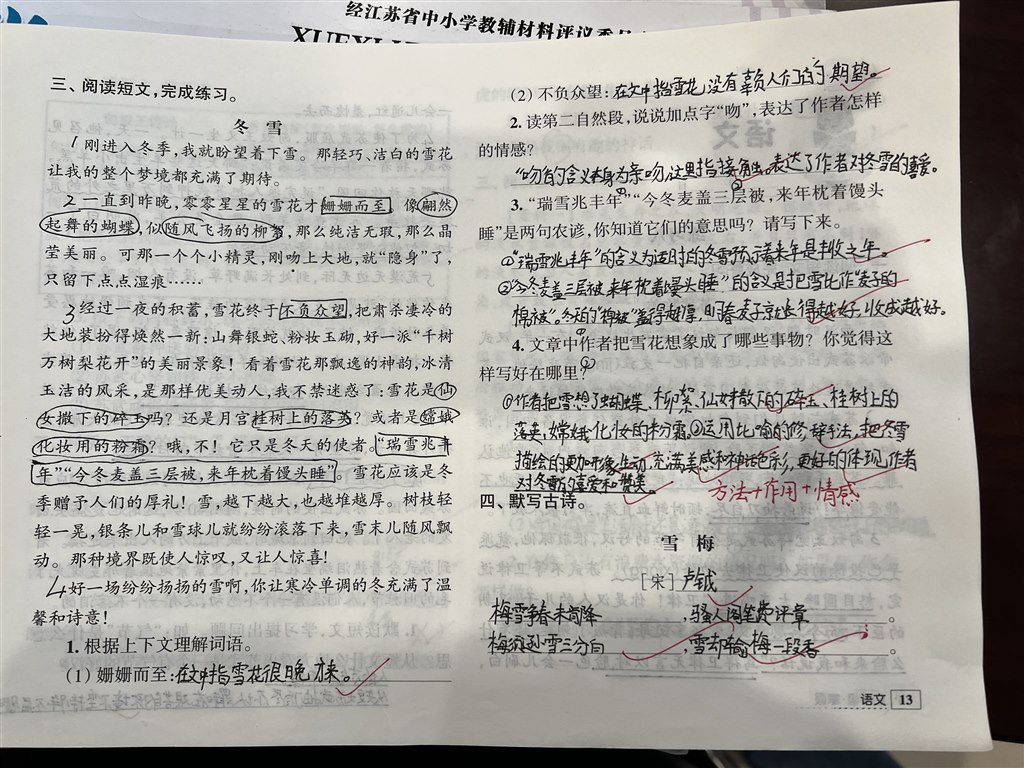 经江苏省中小学教辅材料评议委员
三、阅读短文,完成练习。
冬 雪
1 刚进入冬季,我就盼望着下雪。那轻巧、洁白的雪花
让我的整个梦境都充满了期待。
2 一直到昨晚,零零星星的雪花才姗姗而至,像翩然
起舞的蝴蝶,似随风飞扬的柳絮,那么纯洁无瑕,那么晶
莹美丽。可那一个个小精灵,刚吻上大地,就“隐身”了,
只留下点点湿痕……
3 经过一夜的积蓄,雪花终于不负众望,把肃杀凄冷的
大地装扮得焕然一新:山舞银蛇、粉妆玉砌,好一派“千树
万树梨花开”的美丽景象!看着雪花那飘逸的神韵,冰清
玉洁的风采,是那样优美动人,我不禁迷惑了:雪花是仙
女撒下的碎玉吗?还是月宫桂树上的落英?或者是嫦娥
化妆用的粉霜?哦,不!它只是冬天的使者。“瑞雪兆丰
年”“今冬麦盖三层被,来年枕着馒头睡”,雪花应该是冬
季赠予人们的厚礼!雪,越下越大,也越堆越厚。树枝轻
轻一晃,银条儿和雪球儿就纷纷滚落下来,雪末儿随风飘
动。那种境界既使人惊叹,又让人惊喜!
4 好一场纷纷扬扬的雪啊,你让寒冷单调的冬充满了温
馨和诗意!
1. 根据上下文理解词语。
(1) 姗姗而至:在文中指雪花很晚才来。
(2) 不负众望:在文中指雪花没有辜负人们的期望。
2. 读第二自然段,说说加点字“吻”,表达了作者怎样
的情感?
“吻”的含义本身为亲吻,这里指接触。表达了作者对冬雪的喜爱。
3. “瑞雪兆丰年”“今冬麦盖三层被,来年枕着馒头
睡”是两句农谚,你知道它们的意思吗?请写下来。
①“瑞雪兆丰年”的含义为适时的冬雪预示着来年是丰收之年。
②“今冬麦盖三层被,来年枕着馒头睡”的含义是把雪比作麦子的
棉被”。冬天的“棉被”盖得越厚,明春麦子就长得越好,收成越好。
4. 文章中作者把雪花想象成了哪些事物?你觉得这
样写好在哪里?
①作者把雪想了蝴蝶、柳絮、仙女撒下的碎玉、桂树上的
落英、嫦娥化妆的粉霜。②运用比喻的修辞手法,把冬雪
描绘的更加形象生动,充满美感和神话色彩,更好的体现作者
对冬雪的喜爱和赞美。
方法+作用+情感
四、默写古诗。
雪 梅
[宋] 卢钺
梅雪争春未肯降,骚人阁笔费评章。
梅须逊雪三分白,雪却输梅一段香。
语文 13